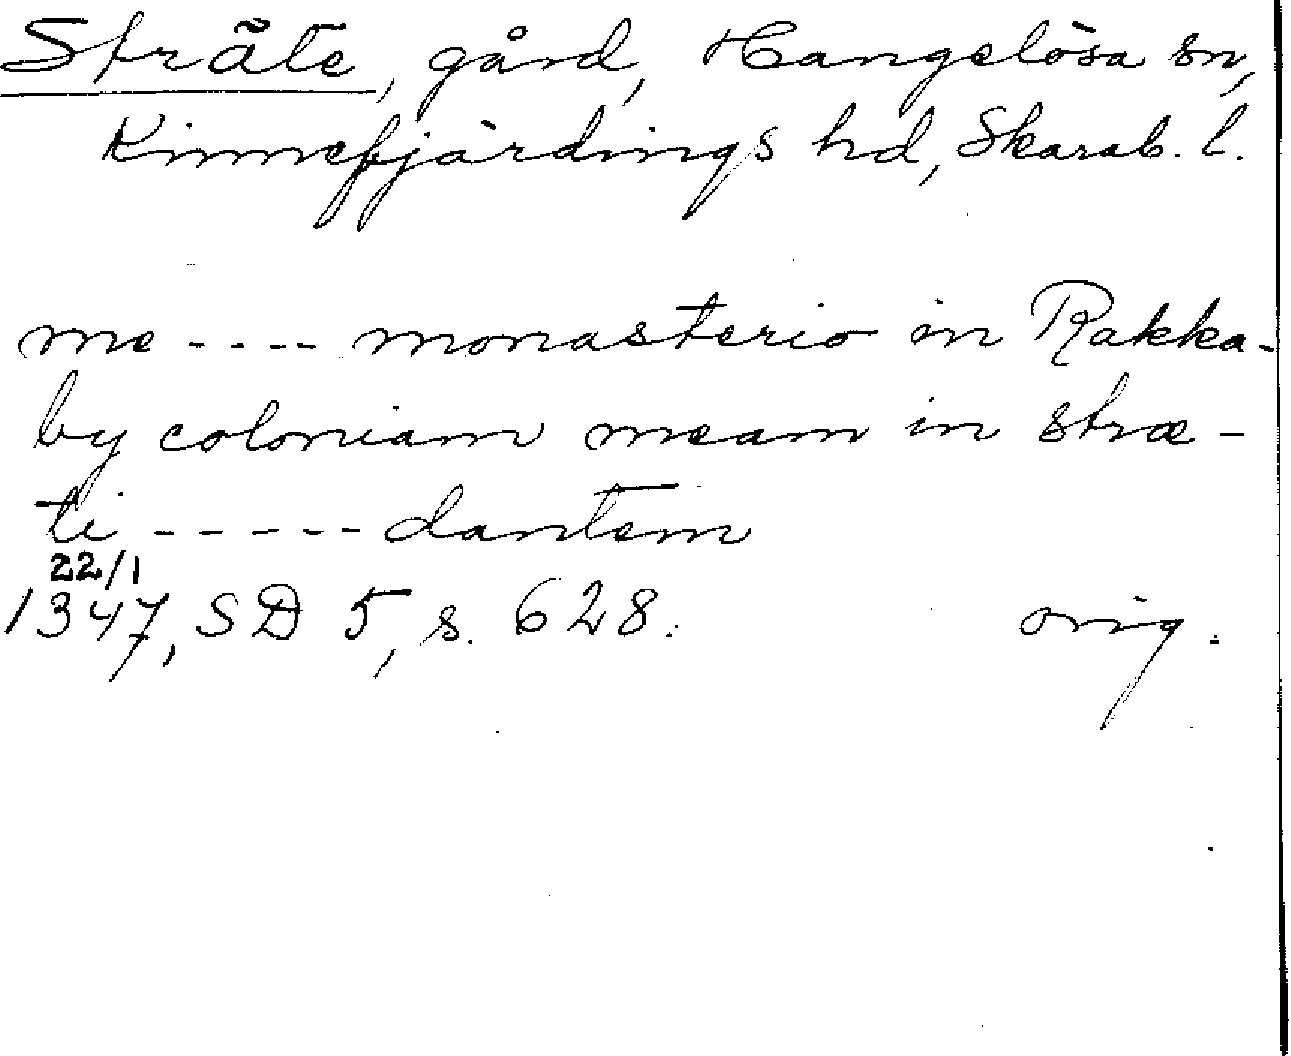 Sträte, gård, Hangelösa sn,
Kinnefjärdings hd, Skarab. l.
me ---- monasterio in Rakka-
by coloniam meam in stræ-
ti ----- dantem
22/1
1347, SD 5, s. 628.
orig.